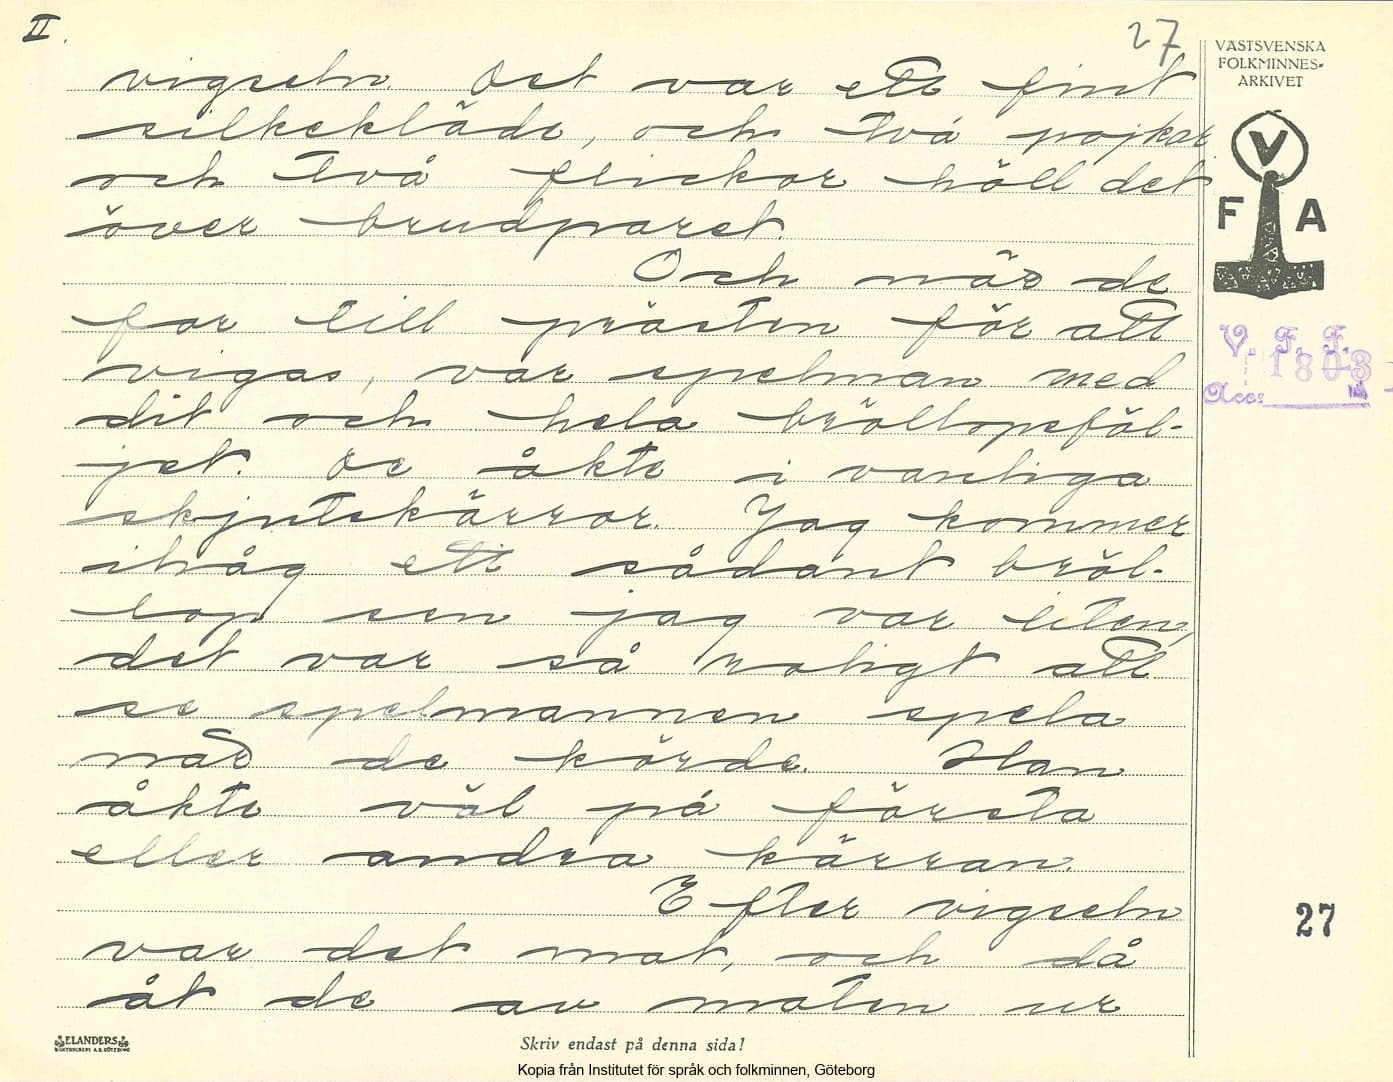 II.
27
VÄSTSVENSKA
FOLKMINNES-
ARKIVET
V
F A
V. F. F.
1803
Acc:
vigseln. Det var ett fint
silkekläde, och två pojkar
och två flickor höll det
över brudparet.
Och när de
for till prästen för att
vigas, var spelman med
dit och hela bröllopsföl-
jet. De åkte i vanliga
skjutskärror. Jag kommer
ihåg ett sådant bröl-
lop sen jag var liten,
det var så roligt att
se spelmannen spela
när de körde. Han
åkte väl på första
eller andra kärran.
Efter vigseln
var det mat, och då
åt de av maten ur
27
ELANDERS
BOKTRYCKERI A.B. GÖTEBORG
Skriv endast på denna sida!
Kopia från Institutet för språk och folkminnen, Göteborg